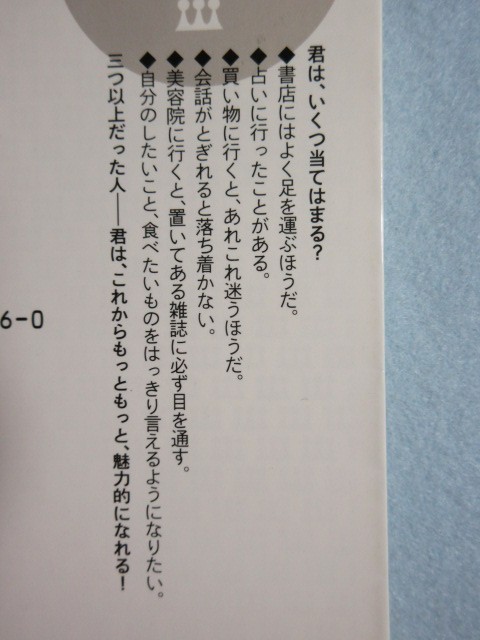 君は、いくつ当てはまる？
◆書店にはよく足を運ぶほうだ。
◆占いに行ったことがある。
◆買い物に行くと、あれこれ迷うほうだ。
◆会話がとぎれると落ち着かない。
◆美容院に行くと、置いてある雑誌に必ず目を通す。
◆自分のしたいこと、食べたいものをはっきり言えるようになりたい。
三つ以上だった人——君は、これからもっともっと、魅力的になれる！
6-0